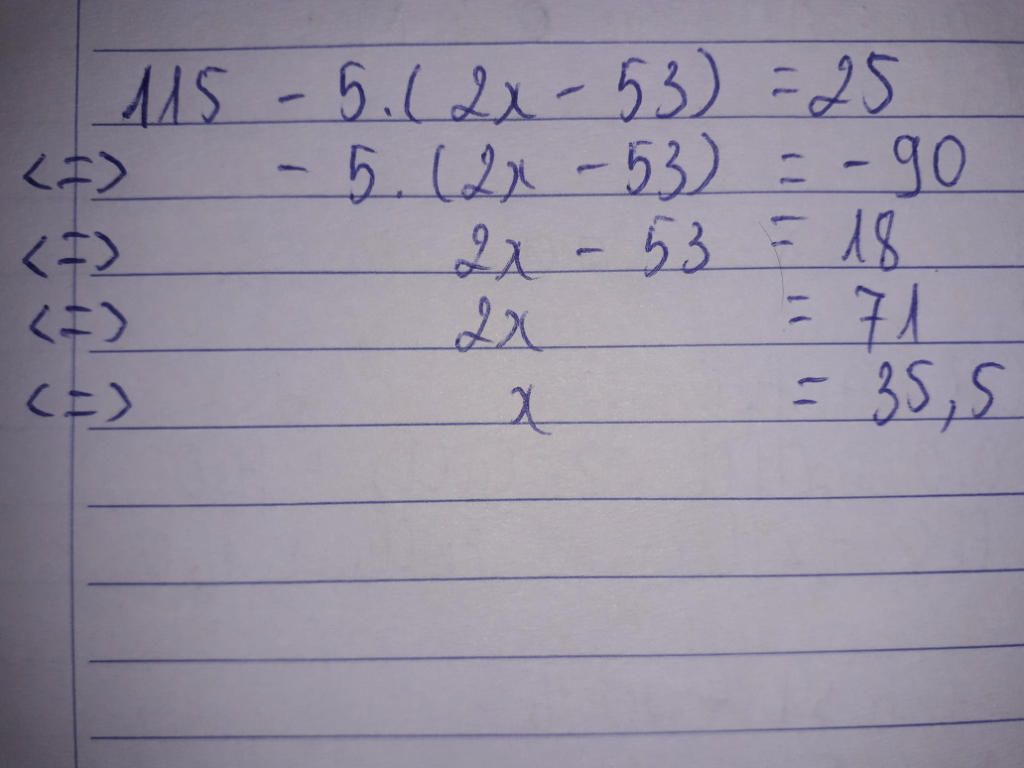 115 - 5.( 2x - 53) = 25
<=> - 5.(2x - 53) = - 90
<=> 2x - 53 = 18
<=> 2x = 71
<=> x = 35,5